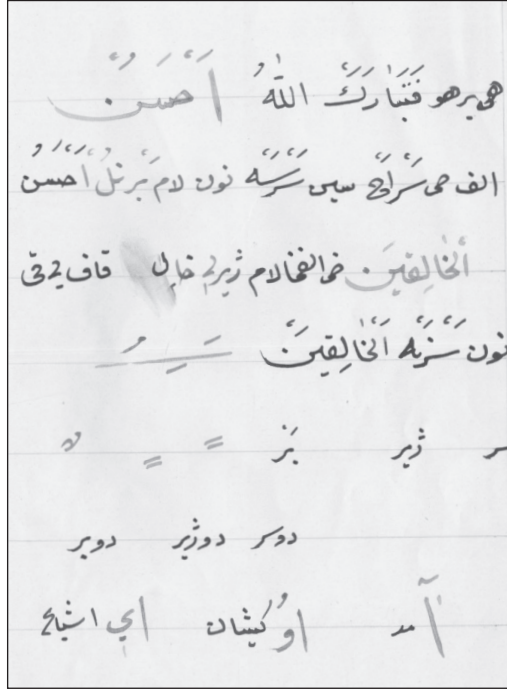 هی برهو فَتَبَارَكَ اللّٰهُ أَحسَنُ
الف حی سَرْاَحْ سین سَرْسَه نون لام بَرنلُ اَحسَنُ
الخَالِقِینَ خی الفخا لام ژیرلِ خالِ قاف یے قی
نون سَرْنَه اَلخَالِقِینَ
سر ژیر بَر
دوسر دوژیر دوبر
آ مد اوُ کیشان اي اشباع